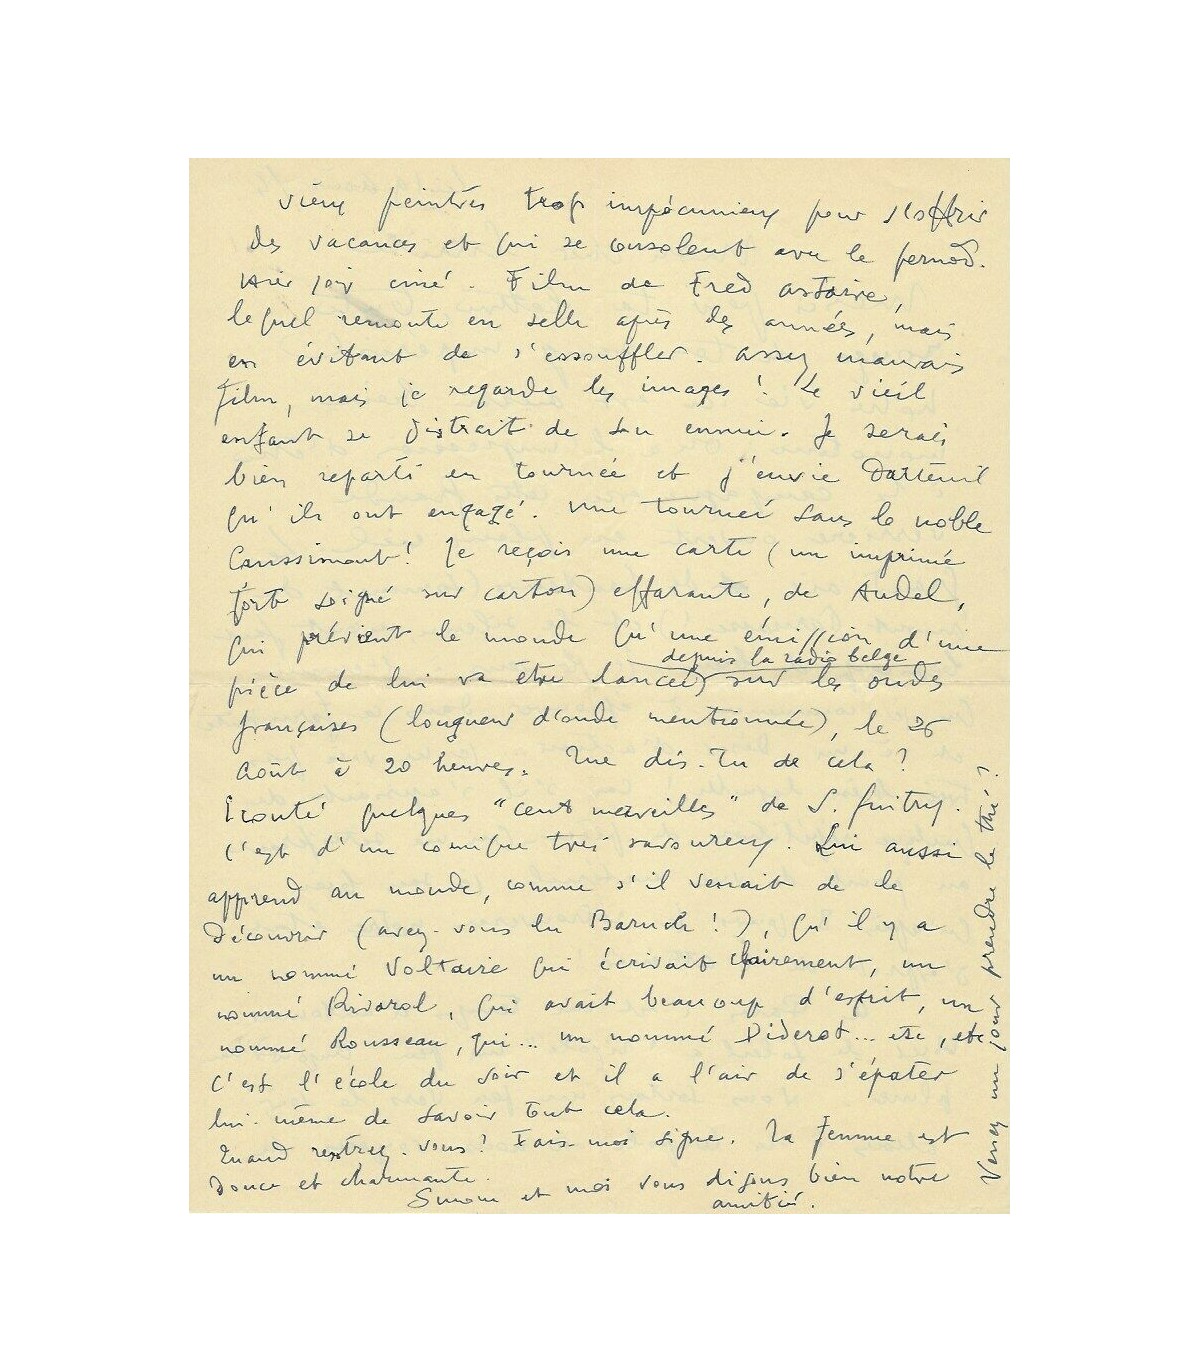 vieux peintres trop impécunieux pour s'offrir
des vacances et qui se consolent avec le pernod.
Hier soir ciné. Film de Fred Astaire,
lequel remonte en selle après des années, mais
en évitant de s'essouffler. Assez mauvais
film, mais je regarde les images! Le vieil
enfant se distrait de son ennui. Je serais
bien reparti en tournée et j'envie Darteuil
qu'ils ont engagé. Une tournée sans le noble
Caussimont! Je reçois une carte (un imprimé
fort soigné sur carton) effarante, de Audel,
qui prévient le monde qu'une émission d'une
depuis la radio belge
pièce de lui va être lancée sur les ondes
françaises (longueur d'onde mentionnée), le 26
Août à 20 heures. Que dis-tu de cela?
Ecouté quelques "cent merveilles" de S. Guitry.
C'est d'un comique très savoureux. Lui aussi
apprend au monde, comme s'il venait de le
découvrir (avez-vous lu Baruch!), qu'il y a
un nommé Voltaire qui écrivait clairement, un
nommé Rivarol, qui avait beaucoup d'esprit, un
nommé Rousseau, qui... un nommé Diderot... etc, etc
C'est l'école du soir et il a l'air de s'épater
lui-même de savoir tout cela.
Quand rentrez-vous? Fais-moi signe. Ta femme est
douce et charmante.
Simone et moi vous disons bien notre
amitié.
Venez un jour prendre le thé?